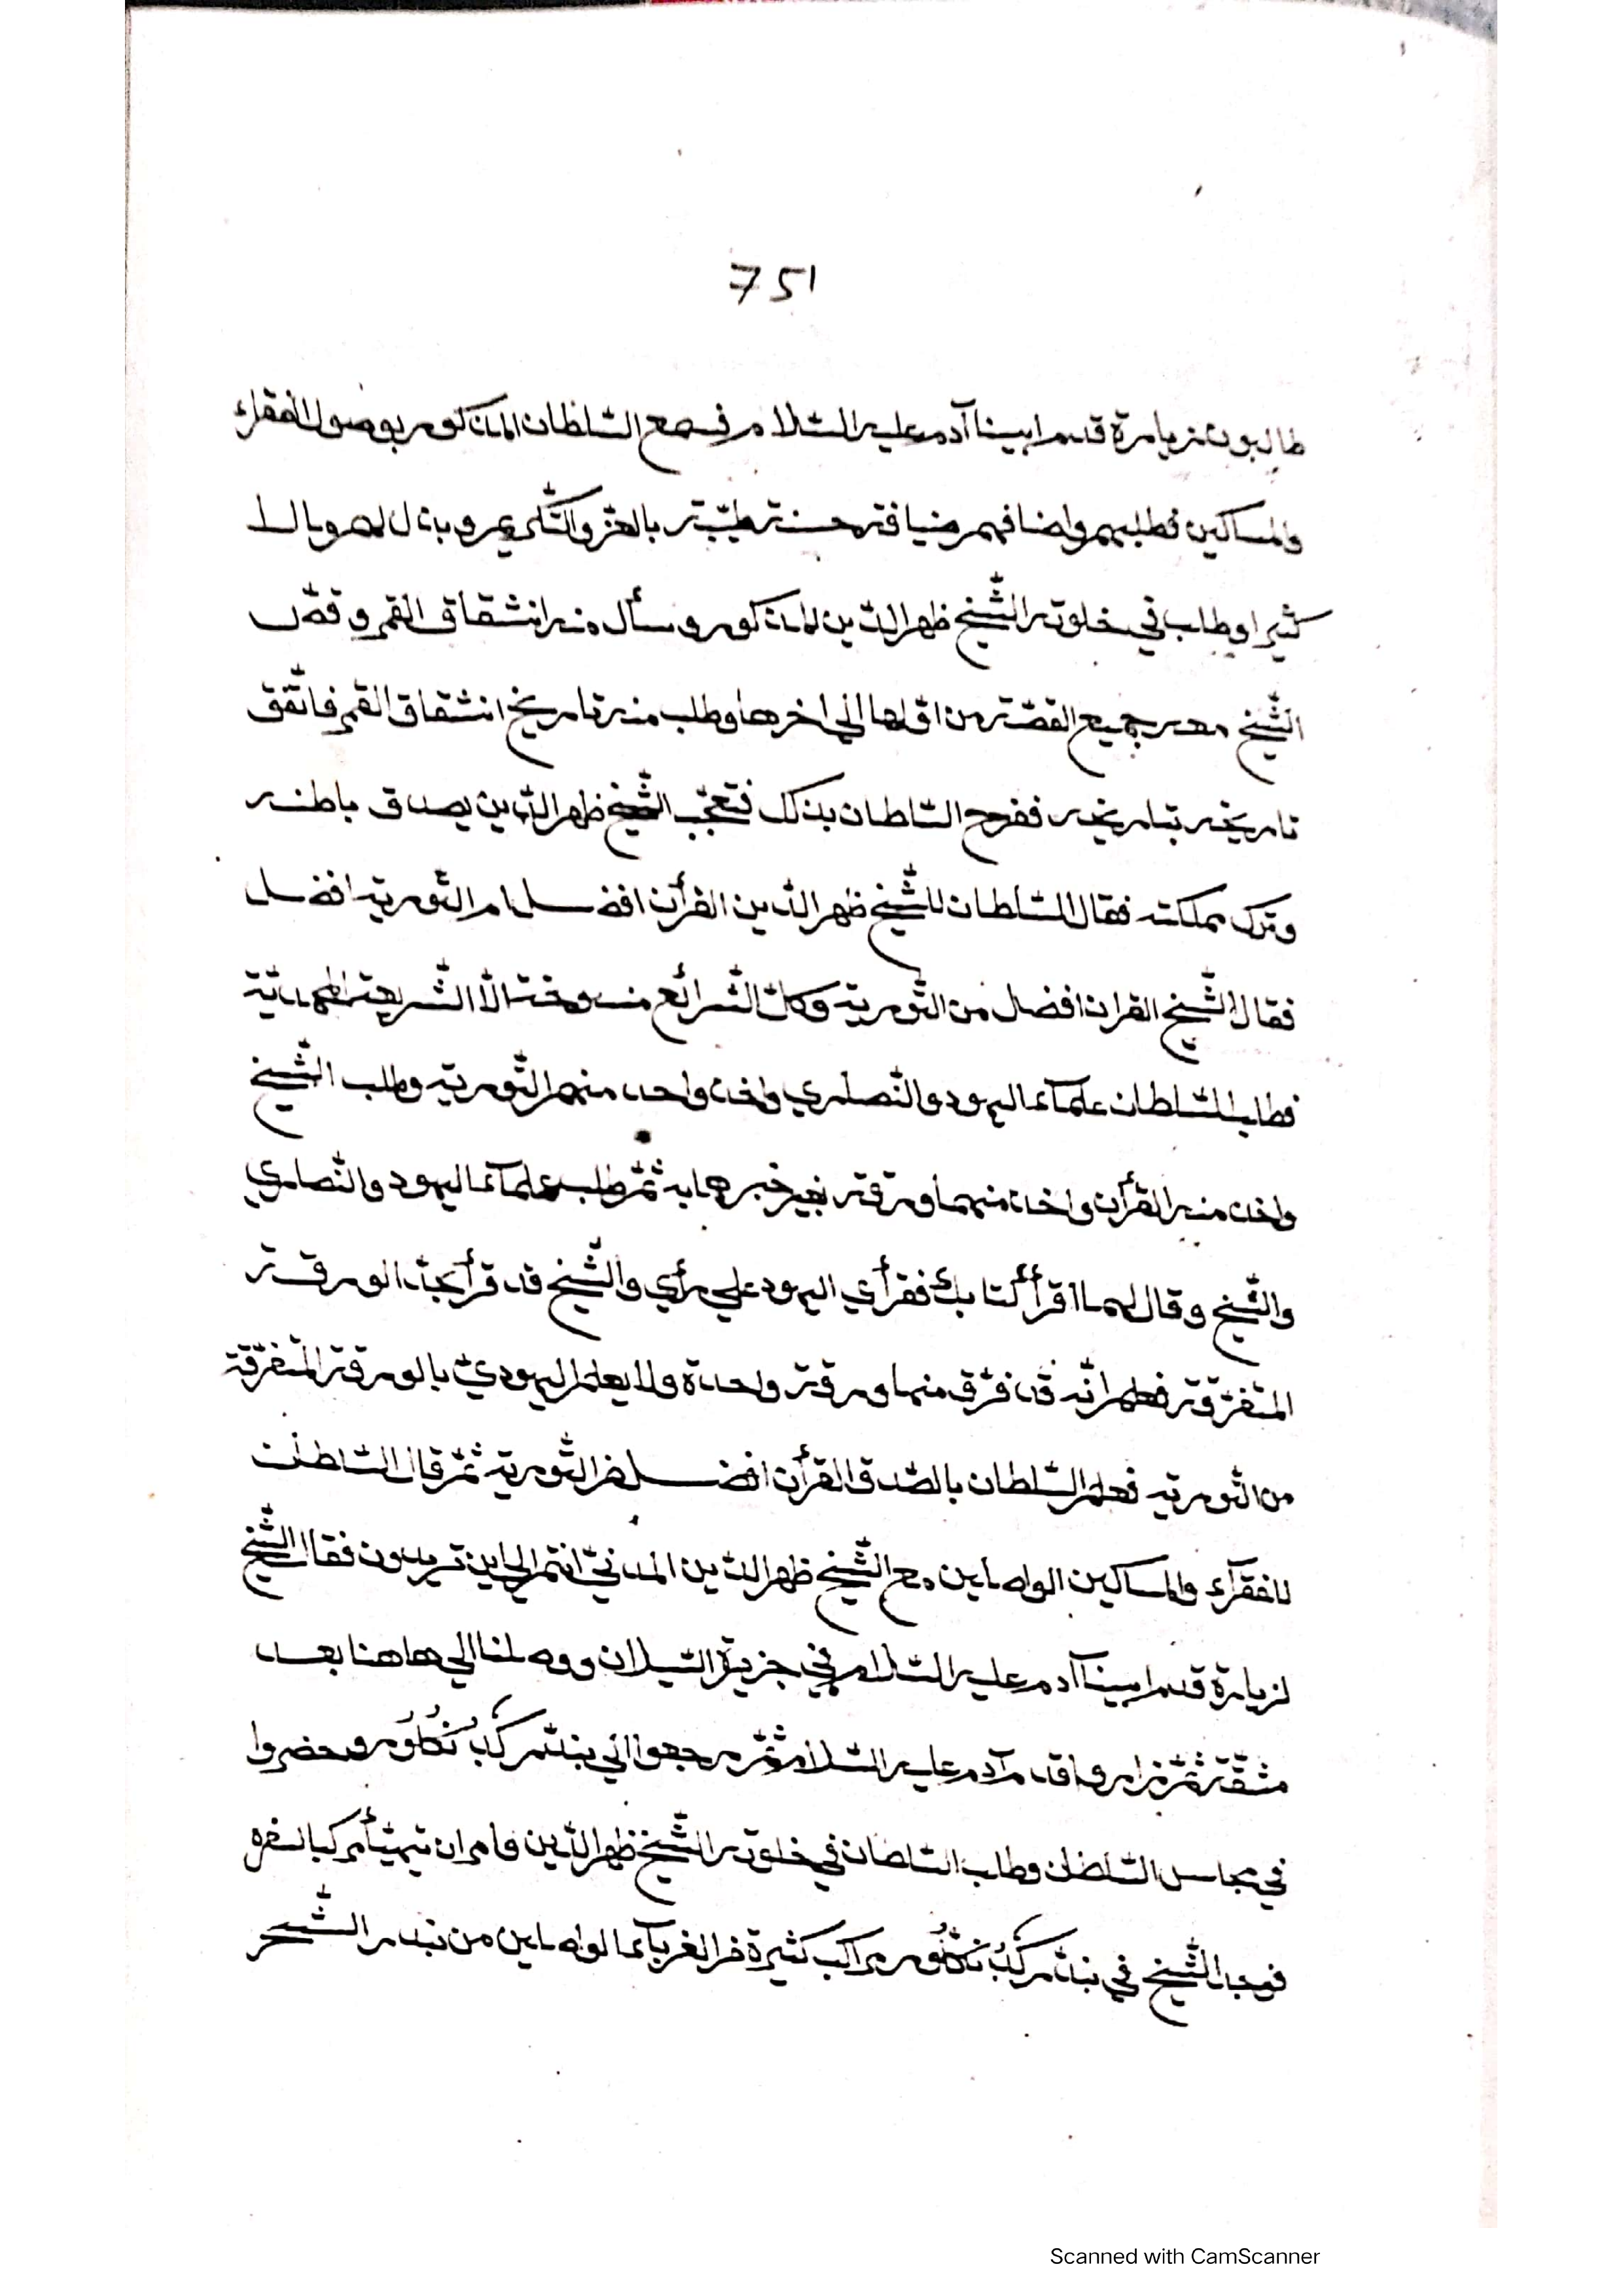 751
طالبون زيارة قدم ابينا آدم عليه السّلام فسمع السّلطان المذكور بوصول الفقراء
والمساكين فطلبهم واضافهم ضيافة حسنة طيّبة بالعزّ والتّكريم وبذل لهم مالا
كثيرا وطلب في خلوته الشّيخ ظهر الدّين المذكور وسأل منه انشقاق القمر وقصّ
الشّيخ معه جميع القصّة من اوّلها الي اخرها وطلب منه تاريخ انشقاق القمر فاتّفق
تاريخه بتاريخه ففرح السّلطان بذلك فتعجّب الشّيخ ظهر الدّين بصدق باطنه
وترك مملكته فقال السّلطان للشّيخ ظهر الدّين القرأن افضل ام التّوريّه افضل
فقال الشّيخ القران افضل من التّوريّه وكلّ الشّرائع منسوخة الّا الشّريعة المحمديّة
فطلب السّلطان علمآء اليهود والنّصاري واخذ واحد منهم التّوريّه وطلب الشّيخ
واخذ منه القرأن واخذ منهما ورقة بغير خبرهما به ثمّ طلب علمآء اليهود والنّصاري
والشّيخ وقال لهما اقرأ كتابك فقرأ اليهود علي رأي والشّيخ قد قرأ بجد الورقة
المتفرّقة فعلم انّه قد فرّق منهما ورقة واحدة ولا يعلم اليهوديّ بالورقة المتفرّقة
من التّوريّه فعلم السّلطان بالصّدق القرأن افضل من التّوريّه ثمّ قال السّلطان
للفقرآء والمساكين الواصلين مع الشّيخ ظهر الدّين المدنيّ انتم الي اين تريدون فقال الشّيخ
لزيارة قدم ابينا آدم عليه السّلام في جزيرة السّيلان ووصلنا الي هاهنا بعد
مشقّة ثمّ زاروا قدم آدم عليه السّلام ثمّ رجعوا الي بندر كُدُنْكَلُوْر وحضروا
في مجلس السّلطان وطلب السّلطان في خلوته الشّيخ ظهر الدّين وامر ان يهيّأ مركبا لسفره
فوجد الشّيخ في بندر كُدُنْكَلُوْر مراكب كثيرة من الغربآء الواصلين من بندر الشّحر
Scanned with CamScanner